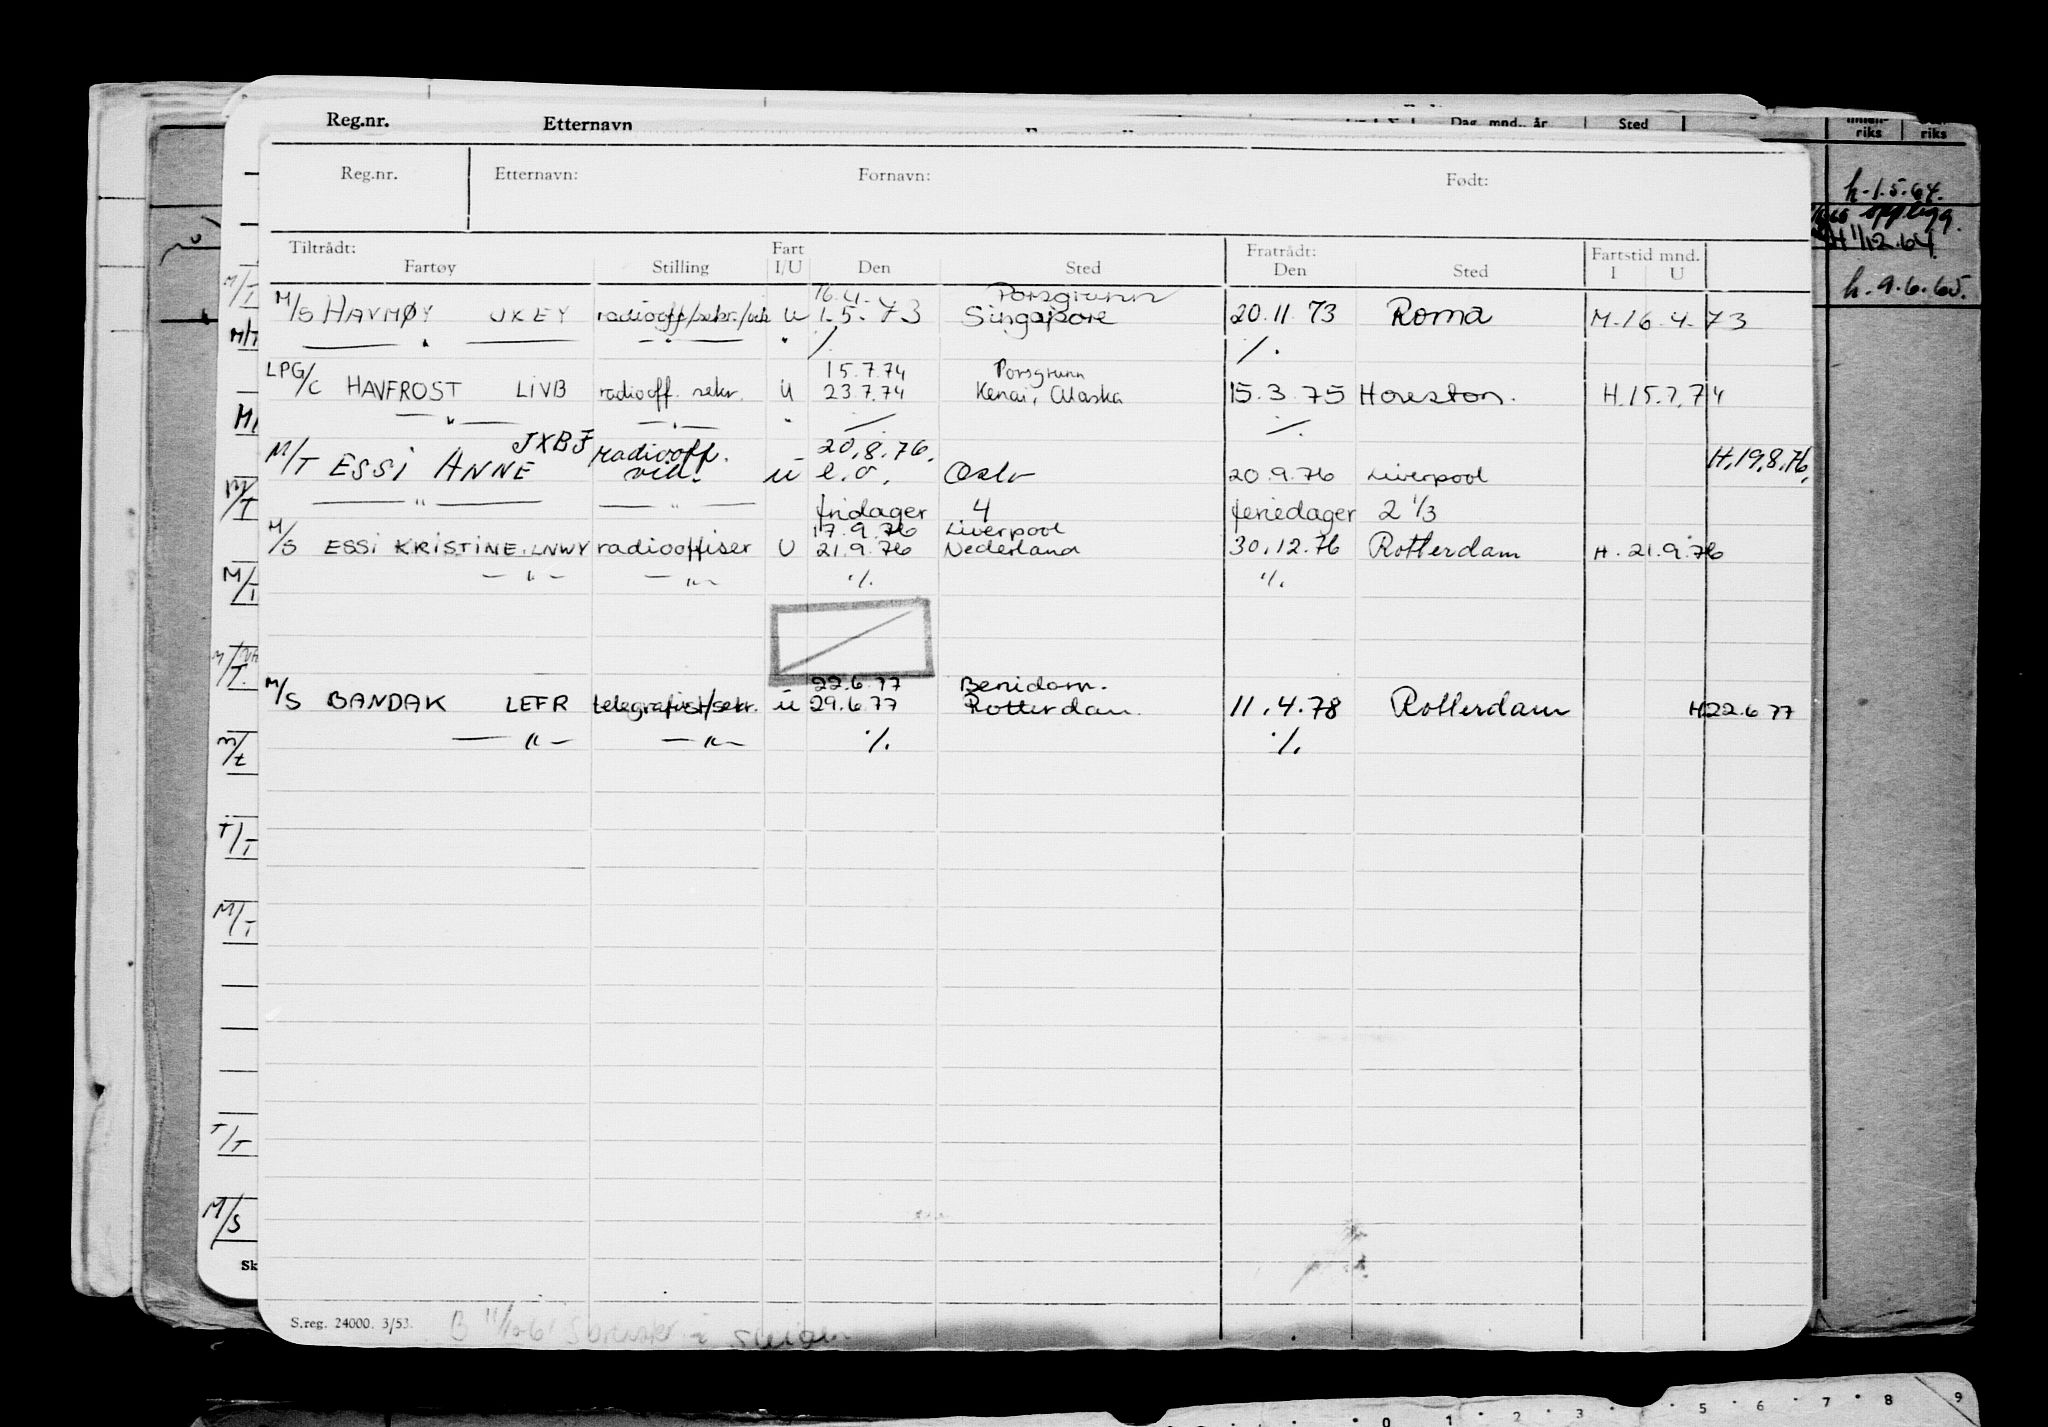 Reg.nr. Etternavn Dag, mnd., år Sted riks riks
Reg.nr. Etternavn: Fornavn: Født:
h. 1.5.64.
opplegg.
H 1/12.64
h. 9.6.65.
Tiltrådt: Fart Fratrådt: Fartstid mnd.
Fartøy Stilling I/U Den Sted Den Sted I U
16.4. Porsgrunn
M/S HAVMØY JXEY radiooff/sekr./vik U 1.5.73 Singapore 20.11.73 Roma M.16.4.73
— " — — " — " ⁒ ⁒
15.7.74 Porsgrunn
LPG/C HAVFROST LIVB radiooff. sekr. U 23.7.74 Kenai, Alaska 15.3.75 Houston. H.15.7.74
— " — — " — " ⁒ ⁒
JXBF radiooff. 20.8.76. H.19.8.76.
M/T ESSI ANNE vik. U e.o. Oslo 20.9.76 Liverpool
— " — — " — fridager 4 feriedager 2 1/3
17.9.76 Liverpool
M/S ESSI KRISTINE. LNWY radiooffiser U 21.9.76 Nederland 30.12.76 Rotterdam H. 21.9.76
— " — — " — ⁒ ⁒
22.6.77 Benidorm.
M/S BANDAK LEFR telegrafist/sekr. U 29.6.77 Rotterdam. 11.4.78 Rotterdam H22.6.77
— " — — " — ⁒ ⁒
M/T
M/T
M/T
M/T
T/T
M/T
T/T
M/S
Sk
S.reg. 24000. 3/53.
0 1 2 3 5 6 7 8 9